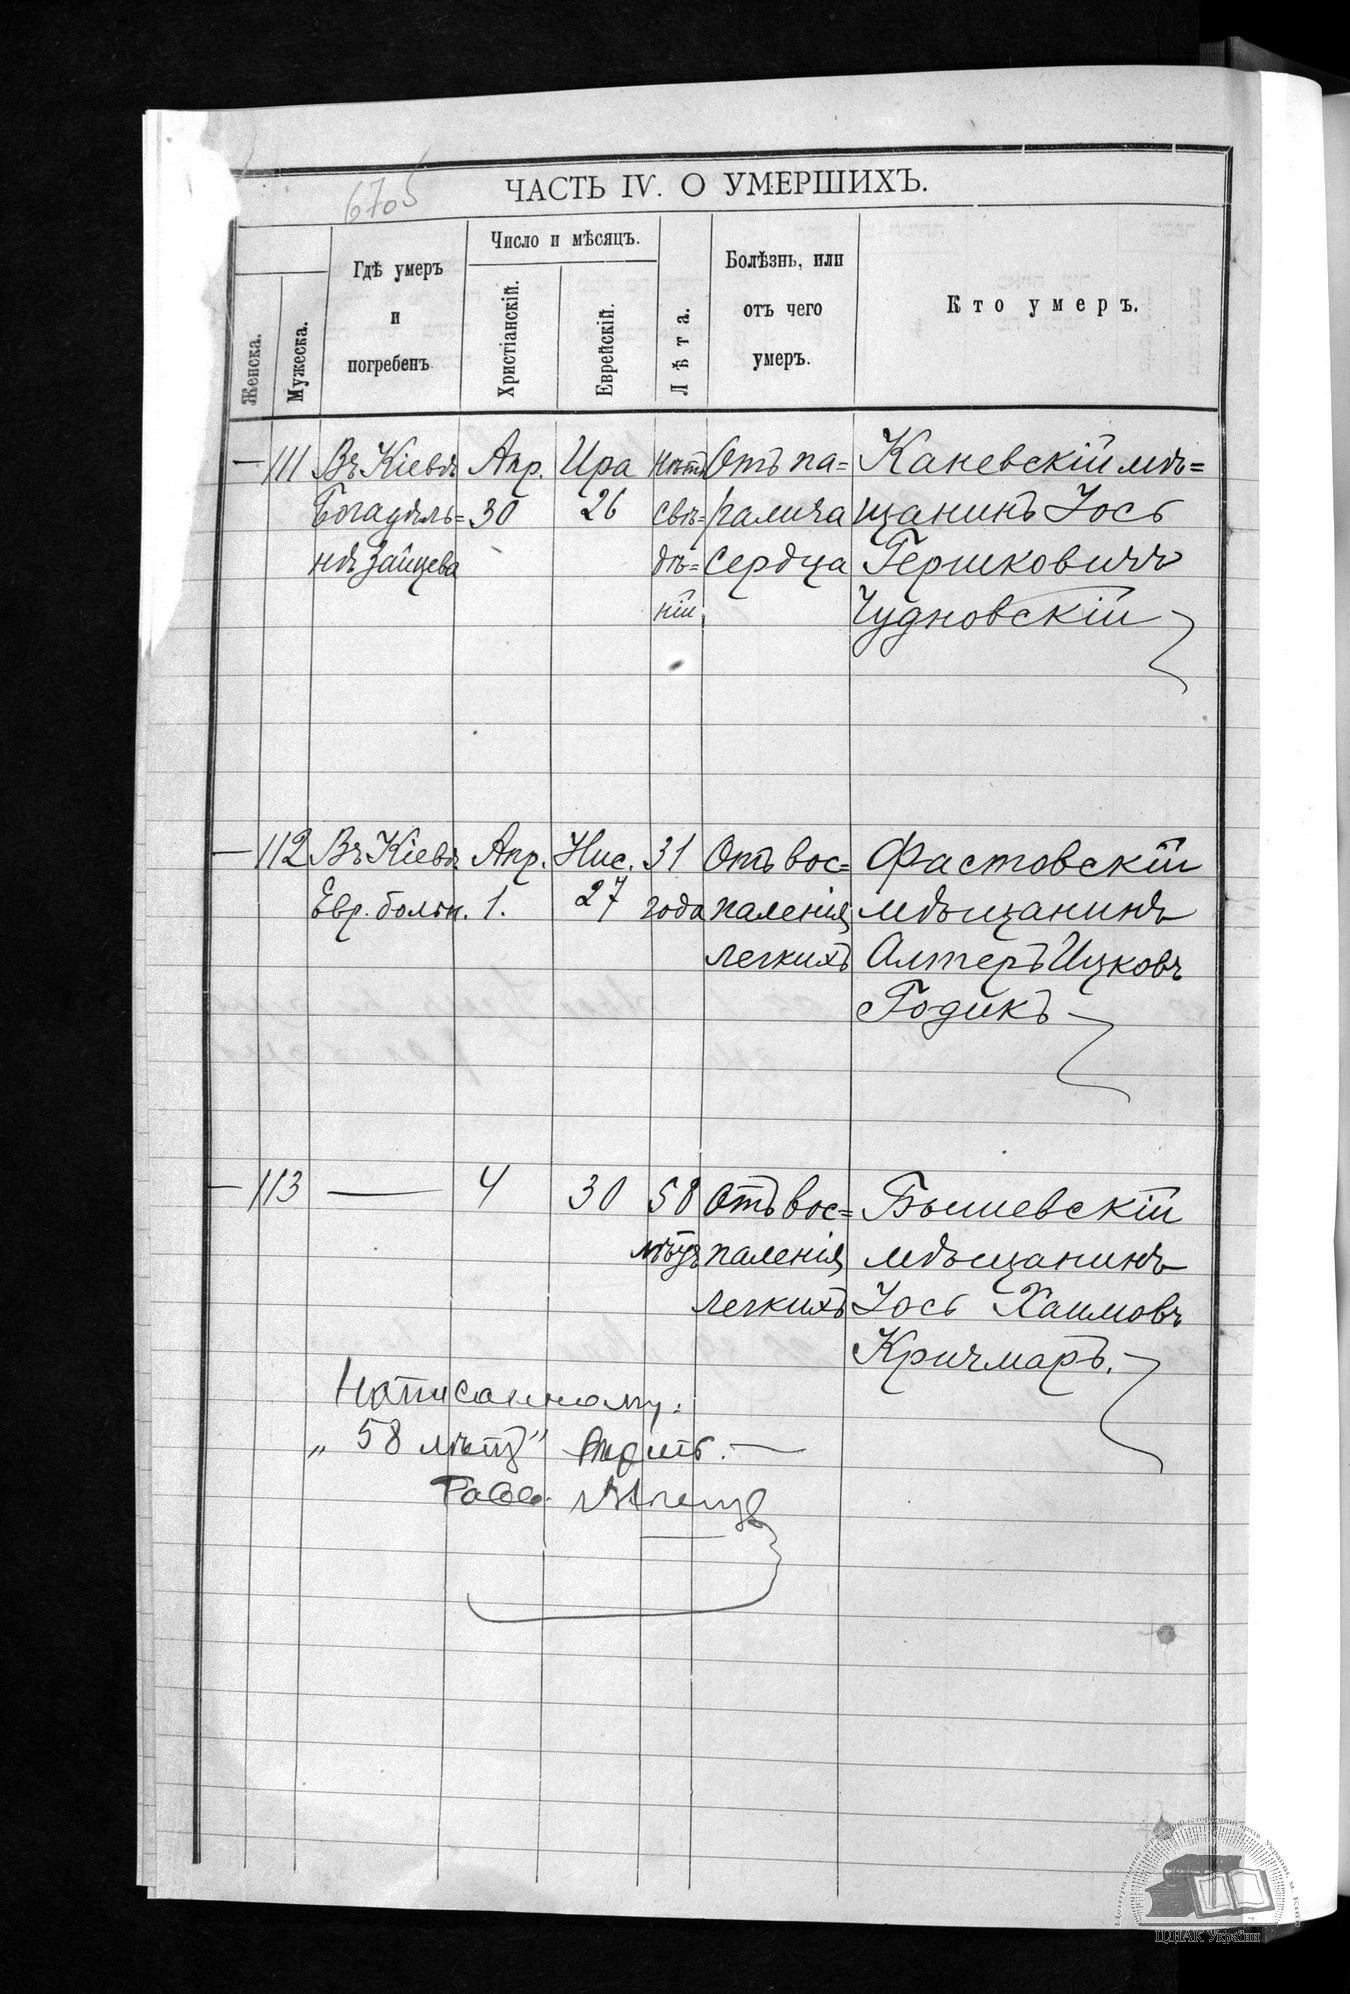 6705
ЧАСТЬ IV. О УМЕРШИХЪ.
Женска.
Мужеска.
Гдѣ умеръ
и
погребенъ
Число и мѣсяцъ.
Христіанскій.
Еврейскій.
Лѣта.
Болѣзнь, или
отъ чего
умеръ.
Кто умеръ.
— 111 Въ Кіевѣ Апр. Ира Нѣтъ Отъ па= Каневскій мѣ=
Богадѣль= 30 26 свѣ= ралича щанинъ Іось
нѣ Зайцева дѣ= сердца Гершковичъ
ній Чудновскій
— 112 Въ Кіевѣ Апр. Нис. 31 Отъ вос= Фастовскій
Евр. больн. 1. 27 года паленія мѣщанинъ
легкихъ Алтеръ Ицковъ
Годикъ
— 113 — 4 30 58 Отъ вос= Бышевскій
лѣтъ паленія мѣщанинъ
легкихъ Іось Хаимовъ
Кричмаръ.
Написанному:
„58 лѣтъ"
Равв.
ЦДІАК України